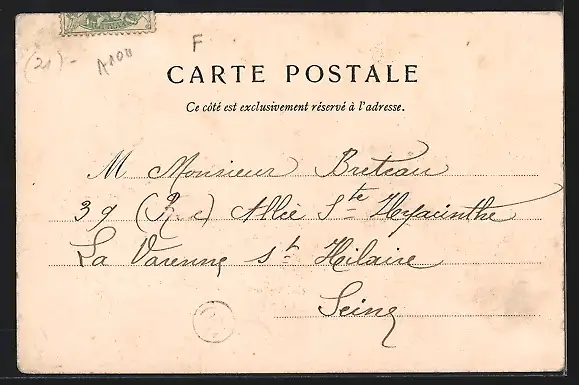 (21)-
A1011
F
CARTE POSTALE
Ce côté est exclusivement réservé à l'adresse.
M Monsieur Breteau
39 (R. c) Allée Ste Hyacinthe
La Varenne St Hilaire
Seine